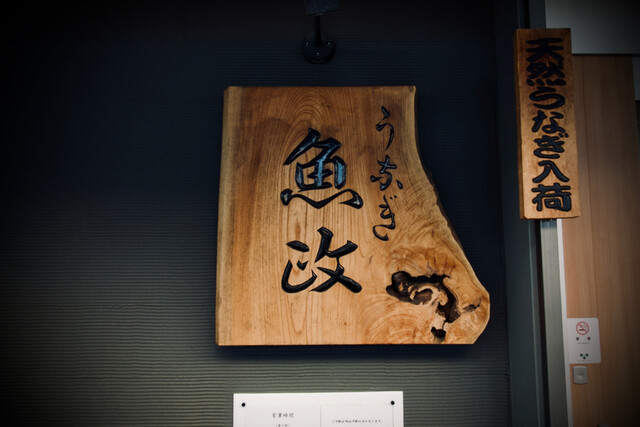 うなぎ
魚政
天然うなぎ入荷
営業時間